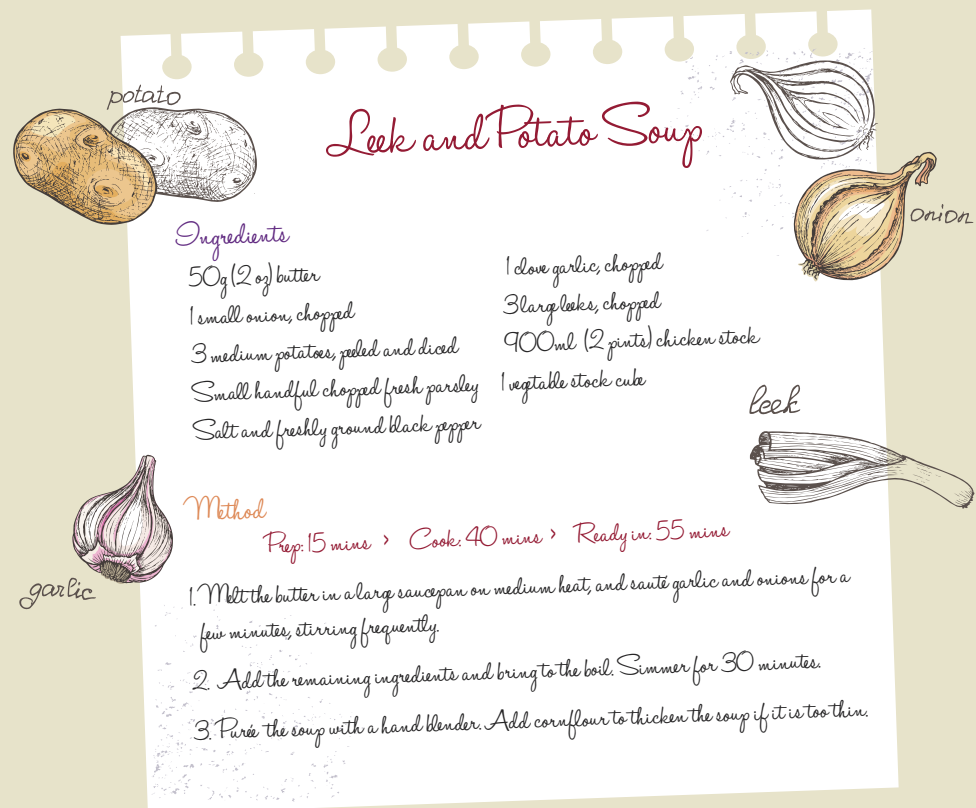 potato
Leek and Potato Soup
onion
Ingredients
50g (2 oz) butter
1 small onion, chopped
3 medium potatoes, peeled and diced
Small handful chopped fresh parsley
Salt and freshly ground black pepper
1 clove garlic, chopped
3 large leeks, chopped
900ml (2 pints) chicken stock
1 vegetable stock cube
leek
garlic
Method
Prep: 15 mins > Cook: 40 mins > Ready in: 55 mins
1. Melt the butter in a large saucepan on medium heat, and sauté garlic and onions for a
few minutes, stirring frequently.
2. Add the remaining ingredients and bring to the boil. Simmer for 30 minutes.
3. Purée the soup with a hand blender. Add cornflour to thicken the soup if it is too thin.